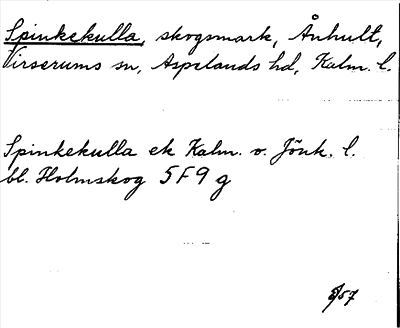 Spinkekulla, skogsmark, Ånhult,
Virserums sn, Aspelands hd, Kalm. l.
Spinkekulla ek Kalm. o. Jönk. l.
bl. Holmskog 5F9g